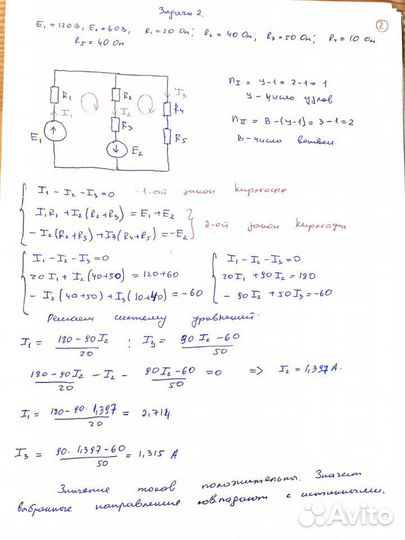 Задача 2.
②
E₁ = 120 В, E₂ = 60 В, R₁ = 20 Ом; R₂ = 40 Ом, R₃ = 50 Ом; R₄ = 10 Ом
R₅ = 40 Ом
R₁ R₂ I₃
I₁ I₂ R₄
R₃
E₁ E₂ R₅
nI = У-1 = 2-1 = 1
У - число узлов
nII = В-(У-1) = 3-1 = 2
В-число ветвей
I₁ - I₂ - I₃ = 0 - 1-ой закон Кирхгофа
I₁R₁ + I₂(R₂+R₃) = E₁+E₂
- I₂(R₂+R₃) + I₃(R₄+R₅) = -E₂
2-ой закон Кирхгофа
I₁ - I₂ - I₃ = 0
20I₁ + I₂(40+50) = 120+60
- I₂(40+50) + I₃(10+40) = -60
I₁ - I₂ - I₃ = 0
20I₁ + 90I₂ = 180
- 90I₂ + 50I₃ = -60
Решаем систему уравнений:
I₁ = (180-90I₂)/20 ; I₃ = (90I₂-60)/50
(180-90I₂)/20 - I₂ - (90I₂-60)/50 = 0 => I₂ = 1,397 А.
I₁ = (180-90·1,397)/20 = 2,712
I₃ = (90·1,397-60)/50 = 1,315 А
Значение токов положительны. Значит
выбранные направления совпадают с истинными.
Avito